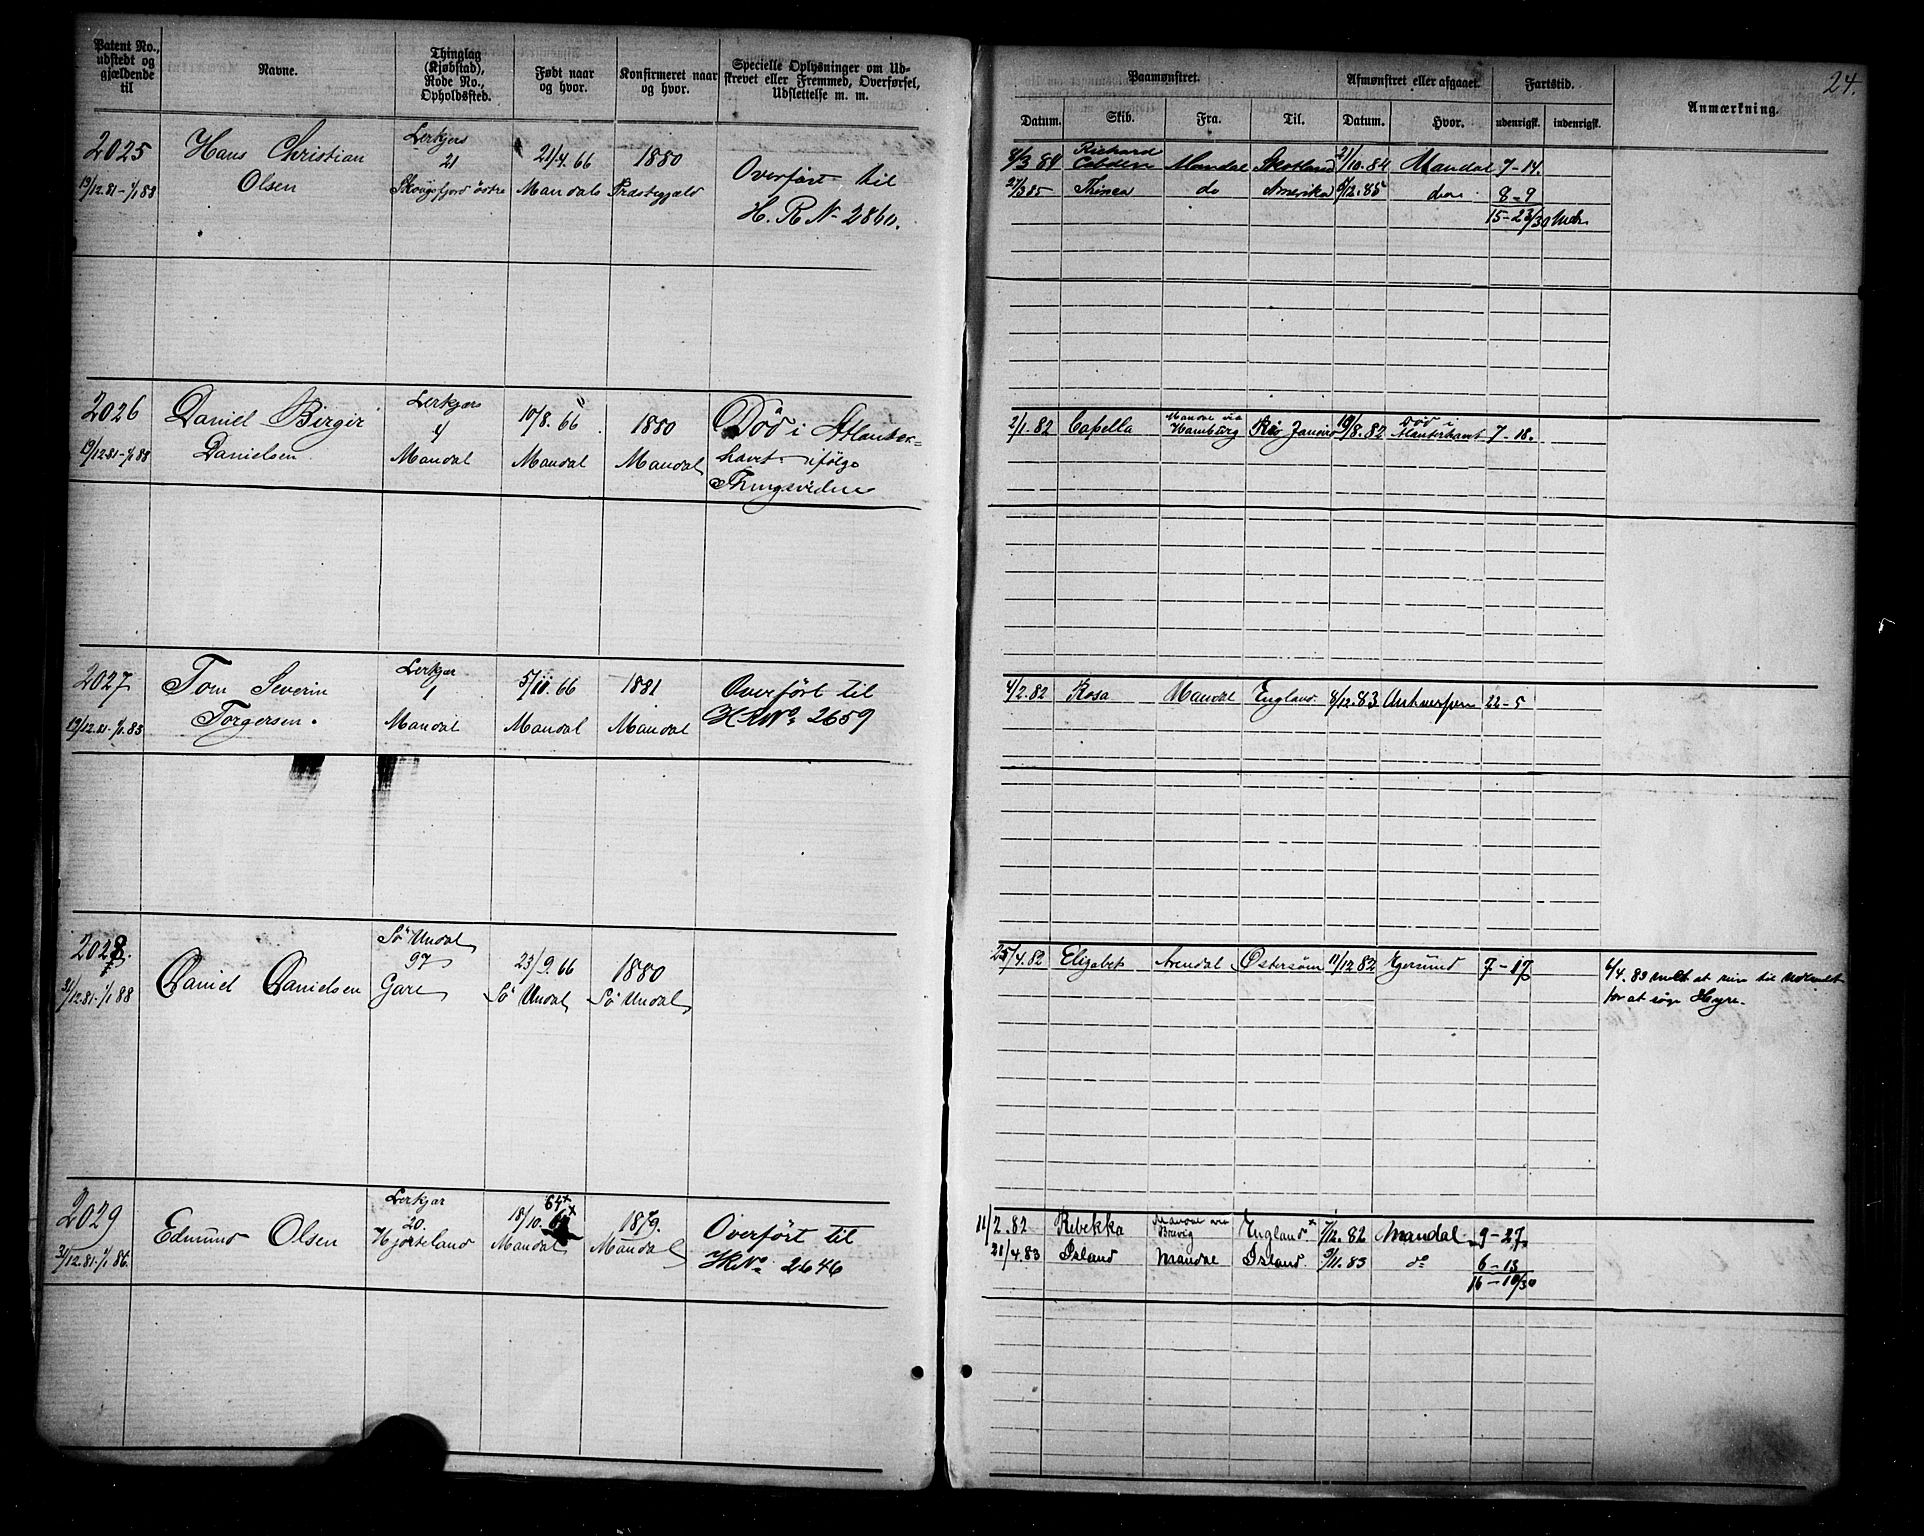 24.
Patent No., udstedt og gjældende til
Navne.
Thinglag (Kjøbstad), Rode No., Opholdssted.
Født naar og hvor.
Konfirmeret naar og hvor.
Specielle Oplysninger om Udskrevet eller Fremmed, Overførsel, Udslettelse m. m.
Paamønstret.
Afmønstret eller afgaaet.
Fartstid.
Anmærkning.
Datum.
Skib.
Fra.
Til.
Datum.
Hvor.
udenrigsk.
indenrigsk.
2025
19/12.81-1/1 88
Hans Christian
Olsen
Lerkjærs
21
21/4.66
Mandals
1880
Præstegjæld
Overført til
H. R No 2860.
4/3 84 Richard Cobden Mandal Skotland 21/10.84 Mandal 7-14.
27/3 85 do Amerika 5/12.85 do 8-9
15-23/30 Mdr.
2026
19/12.81-1/1 88
Daniel Birger
Danielsen
Lerkjærs
4
Mandal
10/8.66
Mandal
1880
Mandal
Død i Atlanter-
havet ifølge
2/1.82 Capella Mandal via Hamburg Rio Janeiro 19/8.82 Død i Atlanterhavet 7-18.
2027
19/12.81-1/1.83
Tom Severin
Torgersen.
Lerkjær
1
Mandal
5/11.66
Mandal
1881
Mandal
Overført til
HRNo 2659
4/2.82 Rosa Mandal England. 8/12.83 Antwerpen 22-5
2028.
31/12.81-1/1 88
Daniel Danielsen
Sø Undal
97
Gare
23/9.66
Sø Undal
1880
Sø Undal
25/4.82 Elizabeth Arendal Østersøen 11/12 82 Egersund 7-17
6/4.83 meldt at reise til
for at søge Hyre.
2029
31/12.81-1/1 86.
Edmund Olsen
Lerkjær
20.
Hjorteland
64+
18/10.
Mandal
1879.
Mandal
Overført til
HRNo 2646
11/2.82 Rebekka Mandal via Brevig England 7/12.82 Mandal 9-27
21/4.83 Island Mandal Island. 9/11.83 do 6-13
16-10/30